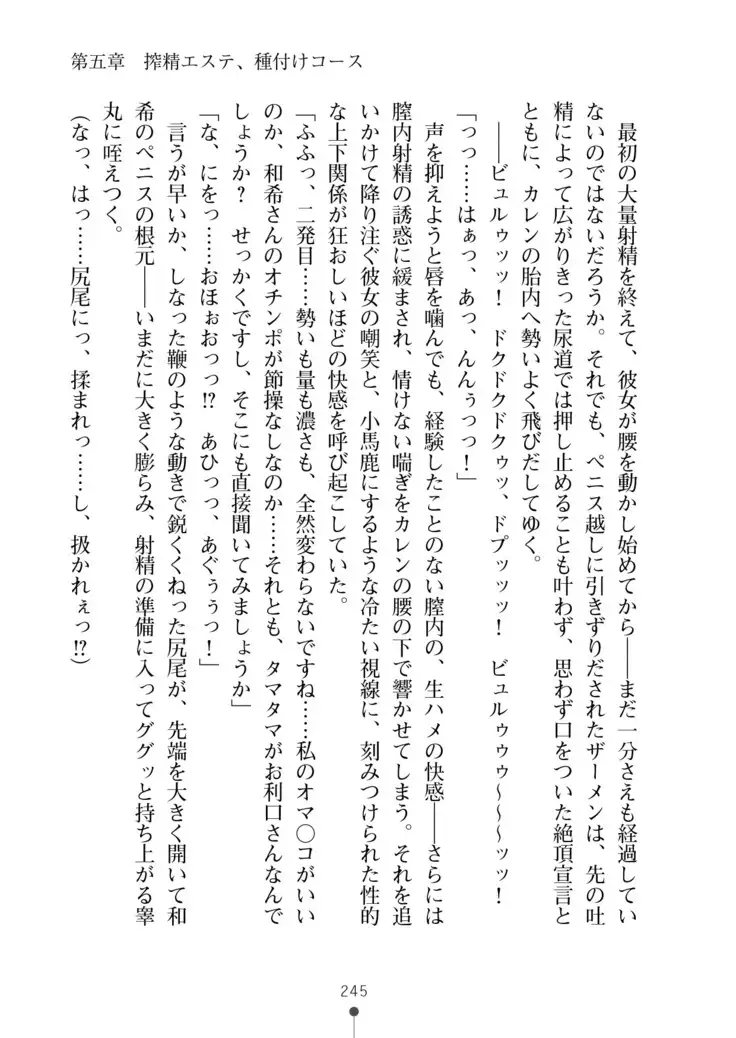 第五章　搾精エステ、種付けコース
　最初の大量射精を終えて、彼女が腰を動かし始めてから――まだ一分さえも経過してい
ないのではないだろうか。それでも、ペニス越しに引きずりだされたザーメンは、先の吐
精によって広がりきった尿道では押し止めることも叶わず、思わず口をついた絶頂宣言と
ともに、カレンの胎内へ勢いよく飛びだしてゆく。
　――ビュルゥッッ！　ドクドクドクゥッ、ドプッッッ！　ビュルゥゥゥ～～～ッッ！
「っっ……はぁっ、あっ、んんぅっっ！」
　声を抑えようと唇を噛んでも、経験したことのない膣内の、生ハメの快感――さらには
膣内射精の誘惑に緩まされ、情けない喘ぎをカレンの腰の下で響かせてしまう。それを追
いかけて降り注ぐ彼女の嘲笑と、小馬鹿にするような冷たい視線に、刻みつけられた性的
な上下関係が狂おしいほどの快感を呼び起こしていた。
「ふふっ、二発目……勢いも量も濃さも、全然変わらないですね……私のオマ〇コがいい
のか、和希さんのオチンポが節操なしなのか……それとも、タマタマがお利口さんなんで
しょうか？　せっかくですし、そこにも直接聞いてみましょうか」
「な、にをっ……おほぉおっっ!?　あひっっ、あぐぅぅっ！」
　言うが早いか、しなった鞭のような動きで鋭くくねった尻尾が、先端を大きく開いて和
希のペニスの根元――いまだに大きく膨らみ、射精の準備に入ってググッと持ち上がる睾
丸に咥えつく。
（なっ、はっ……尻尾にっ、揉まれっ……し、扱かれぇっ!?）
245